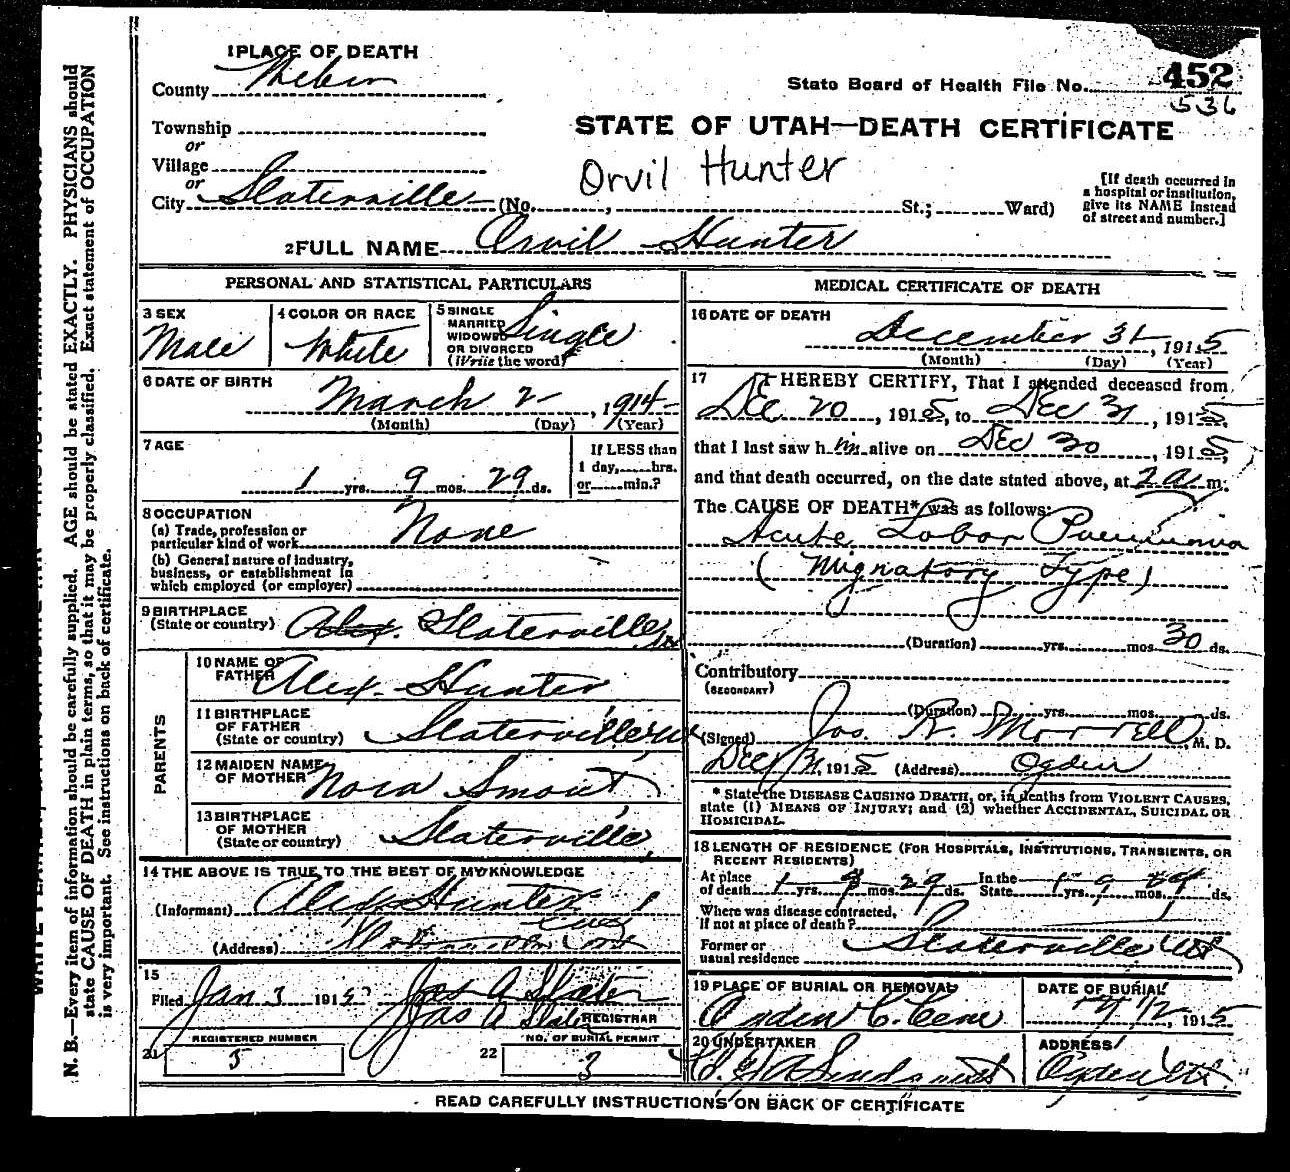 1 PLACE OF DEATH
County Weber
Township
or
Village
or
City Slaterville (No. , St.; Ward)
State Board of Health File No. 452
536
STATE OF UTAH—DEATH CERTIFICATE
Orvil Hunter
[If death occurred in
a hospital or institution,
give its NAME instead
of street and number.]
2 FULL NAME Orvil Hunter
PERSONAL AND STATISTICAL PARTICULARS
3 SEX
Male
4 COLOR OR RACE
White
5 SINGLE
MARRIED
WIDOWED
OR DIVORCED
(Write the word)
Single
6 DATE OF BIRTH
March 2 , 1914
(Month) (Day) (Year)
7 AGE
1 yrs. 9 mos. 29 ds.
If LESS than
1 day, hrs.
or min.?
8 OCCUPATION
(a) Trade, profession or
particular kind of work None
(b) General nature of industry,
business, or establishment in
which employed (or employer)
9 BIRTHPLACE
(State or country) Alex. Slaterville
PARENTS
10 NAME OF
FATHER Alex. Hunter
11 BIRTHPLACE
OF FATHER
(State or country) Slaterville
12 MAIDEN NAME
OF MOTHER Nora Smout
13 BIRTHPLACE
OF MOTHER
(State or country) Slaterville
14 THE ABOVE IS TRUE TO THE BEST OF MY KNOWLEDGE
(Informant) Alex Hunter
(Address)
15
Filed Jan 3 1915 Jas A Slater
Jas A Slater REGISTRAR
REGISTERED NUMBER
21 5
NO. OF BURIAL PERMIT
22 3
MEDICAL CERTIFICATE OF DEATH
16 DATE OF DEATH
December 31, 1915
(Month) (Day) (Year)
17 I HEREBY CERTIFY, That I attended deceased from
Dec 20, 1915, to Dec 31, 1915,
that I last saw h im alive on Dec 30, 1915,
and that death occurred, on the date stated above, at 2 a. m.
The CAUSE OF DEATH* was as follows:
Acute Lobar Pneumonia
(Migratory Type)
(Duration) yrs. mos. 30 ds.
Contributory
(SECONDARY)
(Duration) yrs. mos. ds.
(Signed) Jos. R. Morrell, M. D.
Dec 31, 1915 (Address) Ogden
* State the DISEASE CAUSING DEATH, or, in deaths from VIOLENT CAUSES,
state (1) MEANS OF INJURY; and (2) whether ACCIDENTAL, SUICIDAL OR
HOMICIDAL.
18 LENGTH OF RESIDENCE (FOR HOSPITALS, INSTITUTIONS, TRANSIENTS, OR
RECENT RESIDENTS)
At place
of death 1 yrs. 9 mos. 29 ds. In the
State 1 yrs. 9 mos. 29 ds.
Where was disease contracted,
if not at place of death?
Former or
usual residence Slaterville Ut
19 PLACE OF BURIAL OR REMOVAL
Ogden C. Cem
DATE OF BURIAL
1/2, 1915
20 UNDERTAKER
ADDRESS
Ogden Ut.
READ CAREFULLY INSTRUCTIONS ON BACK OF CERTIFICATE
N. B.—Every item of information should be carefully supplied. AGE should be stated EXACTLY. PHYSICIANS should
state CAUSE OF DEATH in plain terms, so that it may be properly classified. Exact statement of OCCUPATION
is very important. See instructions on back of certificate.